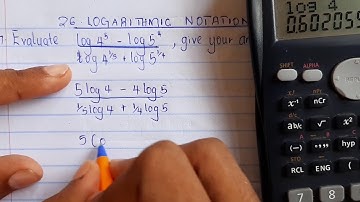 26 LOGARITHMIC NOTATION
Evaluate log 4⁵ - log 5⁴ , give your an
log 4^{1/5} + log 5^{1/4}
5 log 4 - 4 log 5
1/5 log 4 + 1/4 log 5
5 (
log 4
0.602059
SHIFT ALPHA
x⁻¹ nCr
a b/c √ x²
(-) °,,, hyp
RCL ENG
7 8